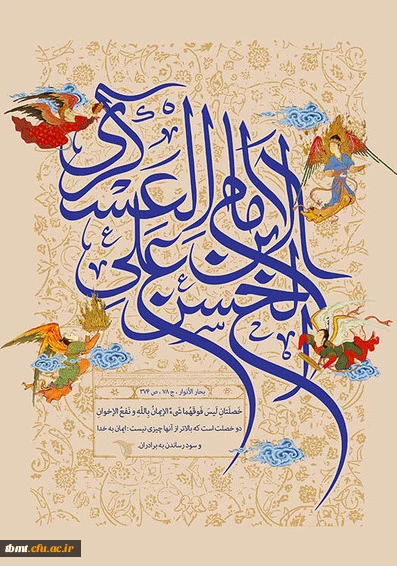 الإمام العسكري
الحسن بن علي
بحار الأنوار ، ج ۷۸ ، ص ۳۷۴
خَصلَتانِ لَیسَ فَوقَهُما شَیءٌ الإیمانُ بِاللّٰهِ وَ نَفعُ الإخوانِ
دو خصلت است که بالاتر از آنها چیزی نیست : ایمان به خدا
و سود رساندن به برادران.
tbmt.cfu.ac.ir